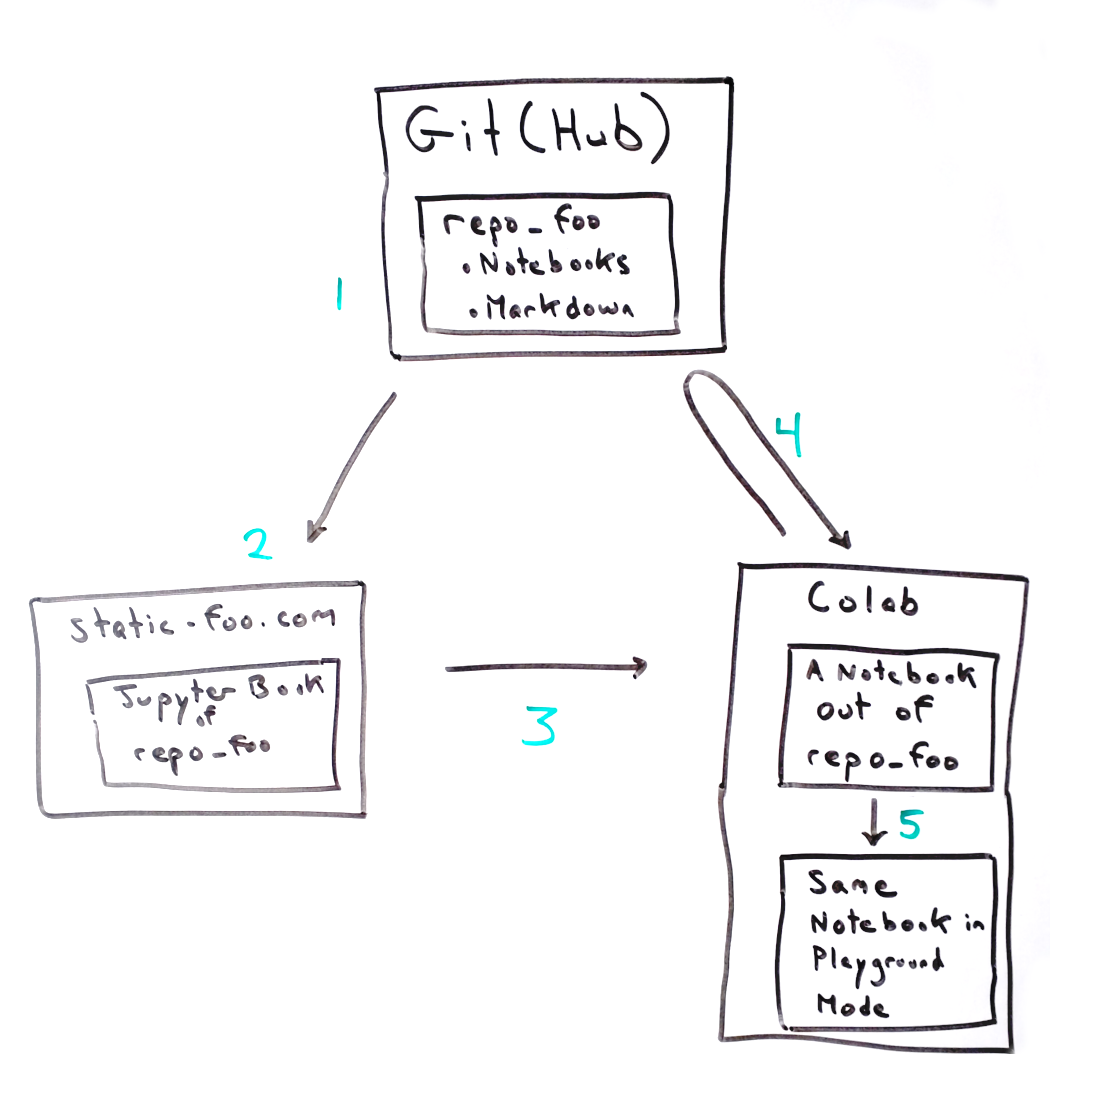 Git(Hub)
repo_foo
• Notebooks
• Markdown
1
4
2
static-foo.com
Jupyter Book
of
repo_foo
3
Colab
A Notebook
out of
repo_foo
5
Same
Notebook in
Playground
Mode